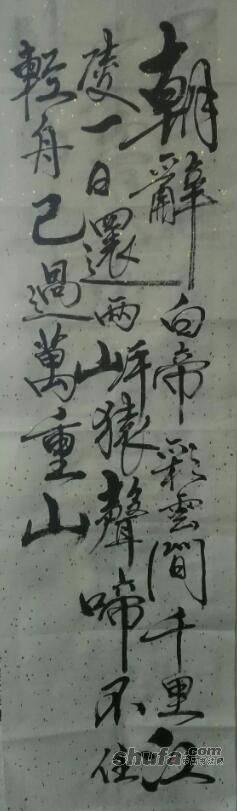 朝辭白帝彩雲間千里江
陵一日還两岸猿聲啼不住
輕舟已過萬重山
shufa.com